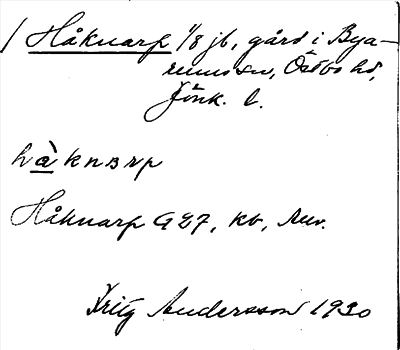 / Håknarp 1/8 jb, gård i Bya-
rums sn, Östbo hd,
Jönk. l.
hàknarp
Håknarp GEJ, kb,
Fritz Andersson 1930